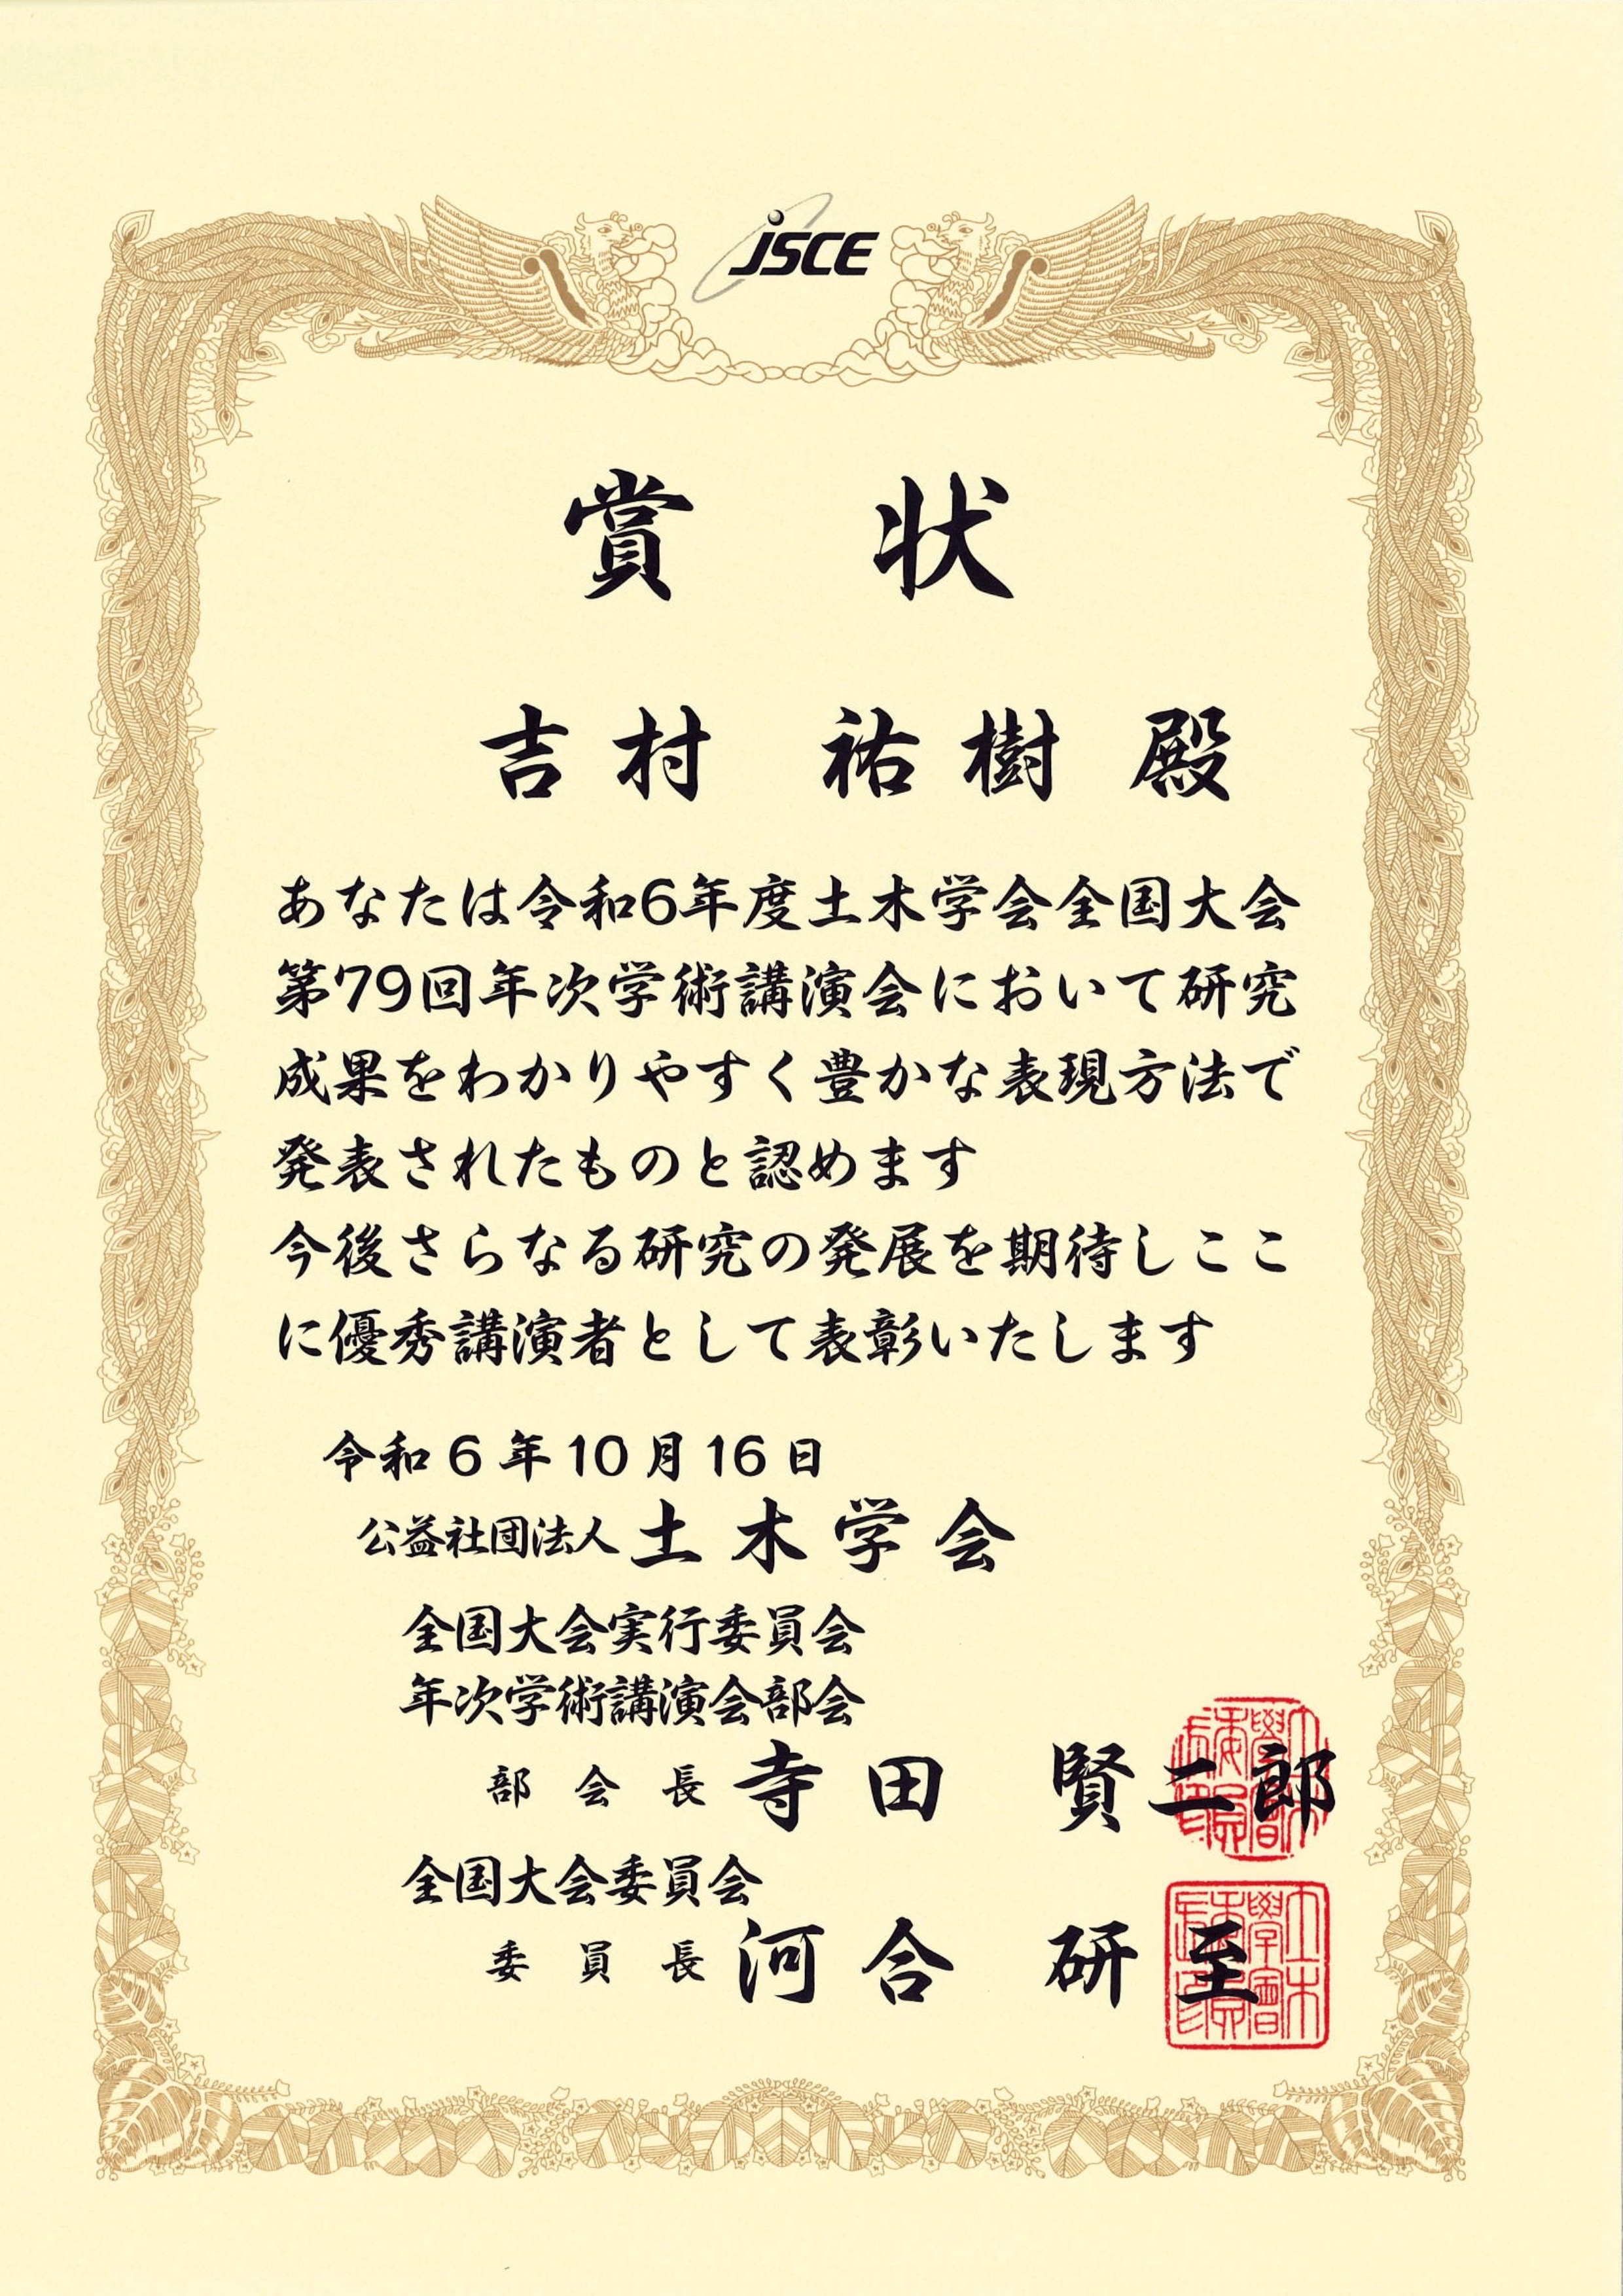 JSCE
賞 状
吉村 祐樹 殿
あなたは令和6年度土木学会全国大会
第79回年次学術講演会において研究
成果をわかりやすく豊かな表現方法で
発表されたものと認めます
今後さらなる研究の発展を期待しここ
に優秀講演者として表彰いたします
令和6年10月16日
公益社団法人 土木学会
全国大会実行委員会
年次学術講演会部会
部会長 寺田 賢二郎
全国大会委員会
委員長 河合 研至